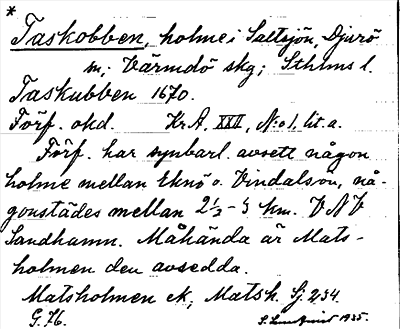 *
Taskobben, holme i Saltsjön, Djurö
sn; Värmdö skg; Sthlms l.
Taskubben 1670.
Förf. okd. Kr. A. XXII, N:o 1, lit. a.
Förf. har synbarl. avsett någon
holme mellan Eknö o. Vindalsön, nå-
gonstädes mellan 2½-3 km. VNV
Sandhamn. Måhända är Mats-
holmen den avsedda.
Matsholmen ek; Matsh. Sj 234.
G. 76. 1935.